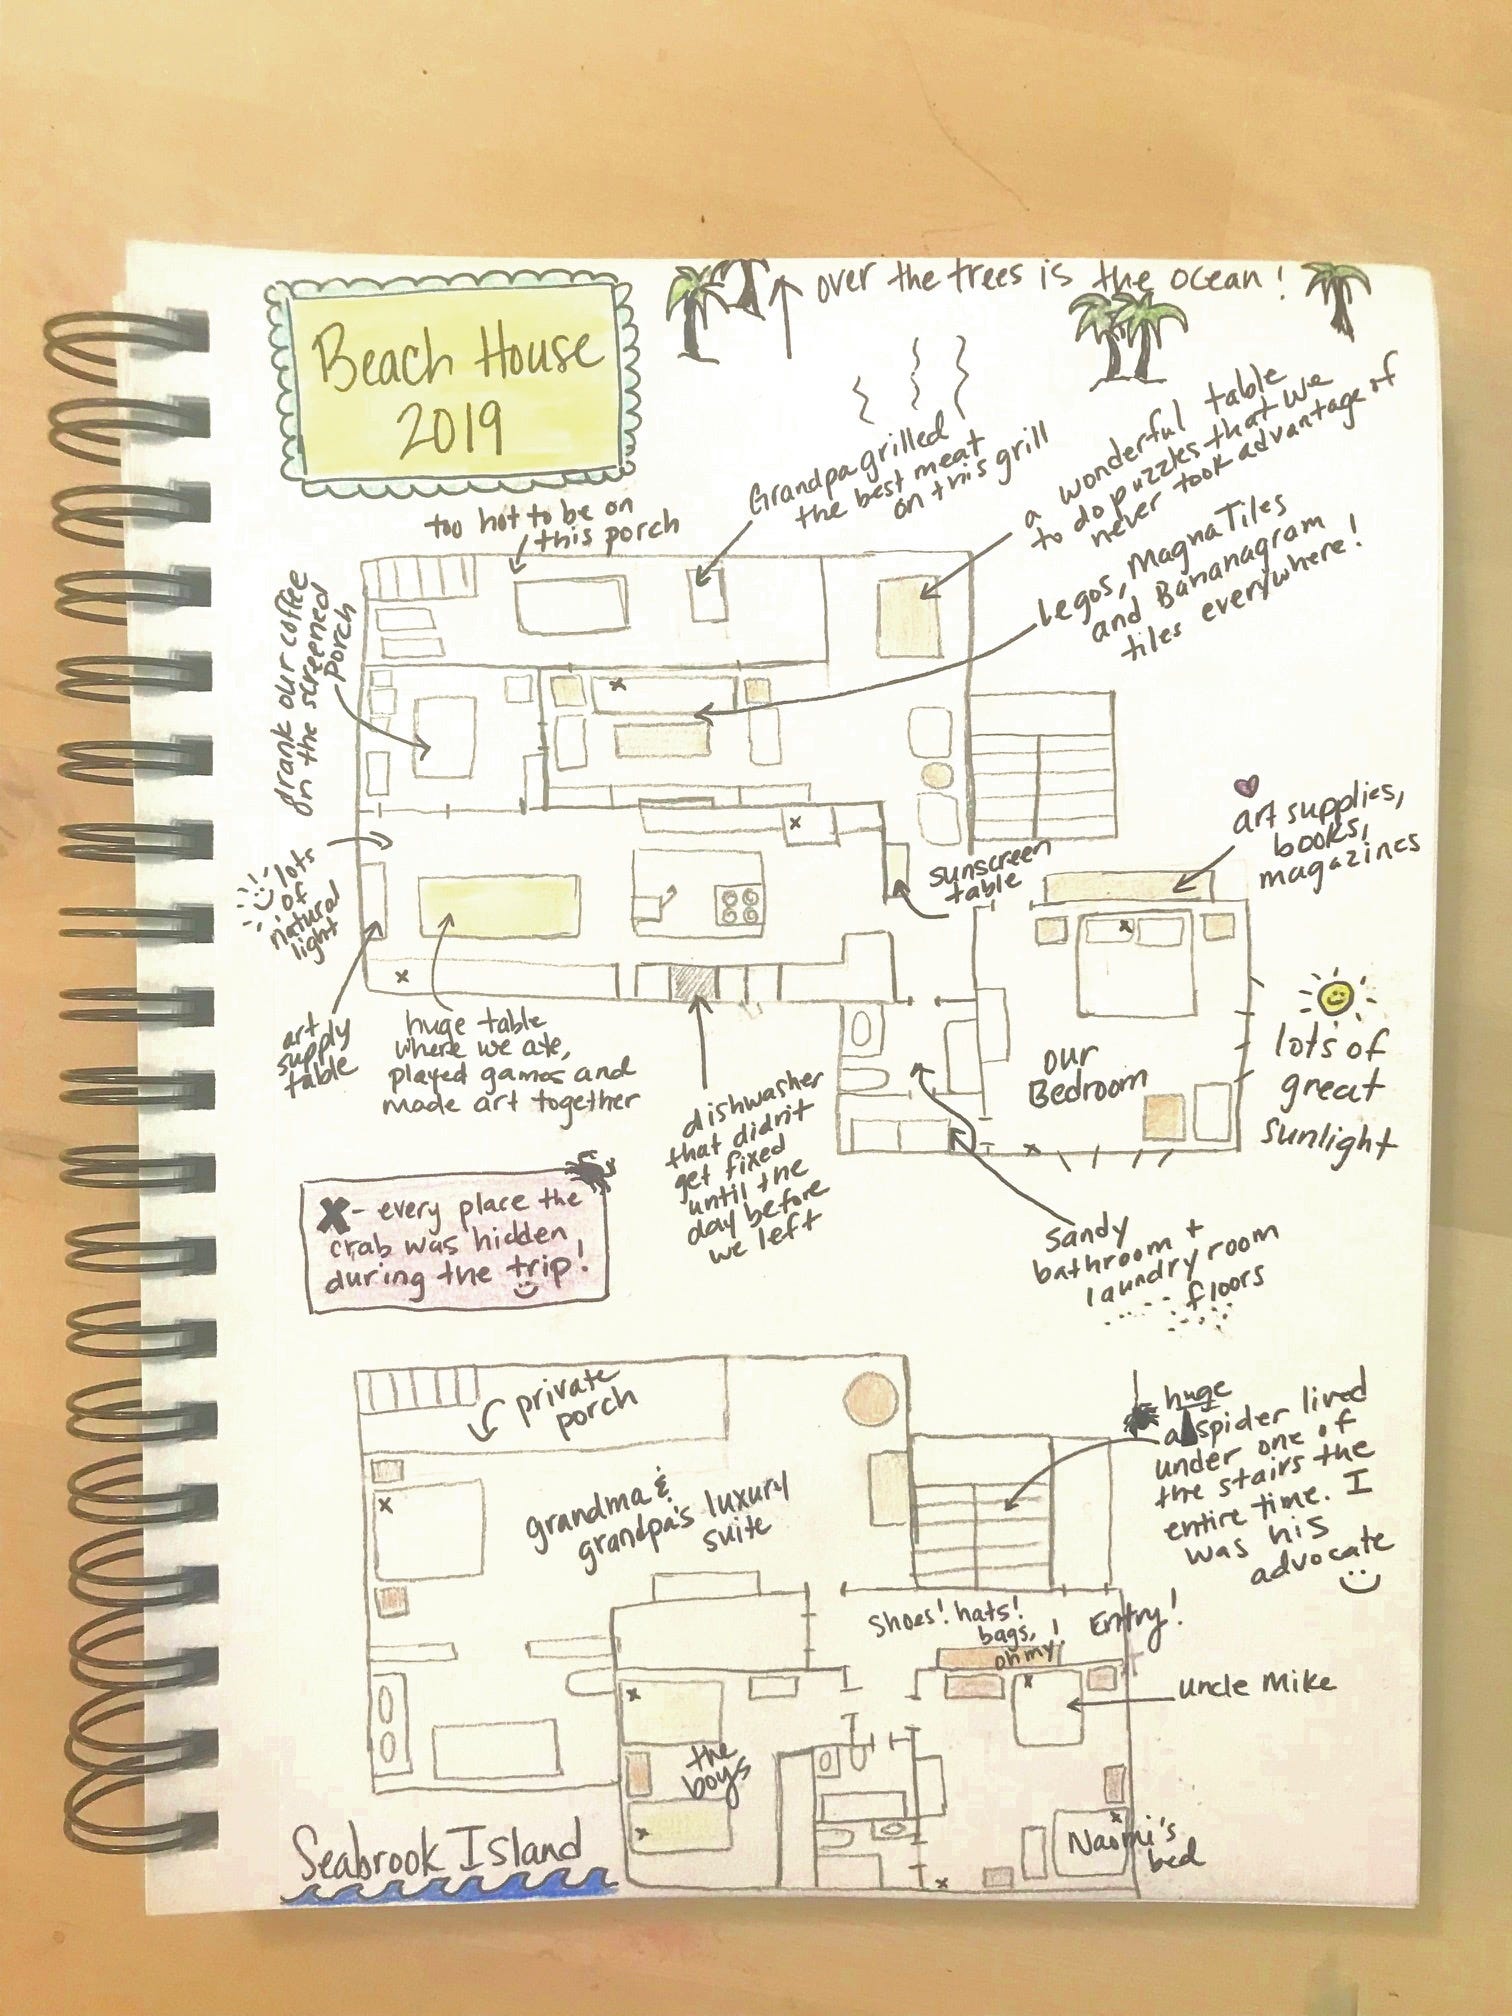 Beach House
2019
over the trees is the ocean!
too hot to be on
this porch
Grandpa grilled
the best meat
on this grill
a wonderful table
to do puzzles that we
never took advantage of
Legos, MagnaTiles
and Bananagram
tiles everywhere!
drank our coffee
on the screened
porch
lots
of
natural
light
sunscreen
table
art supplies,
books,
magazines
art
supply
table
huge table
where we ate,
played games and
made art together
dishwasher
that didn't
get fixed
until the
day before
we left
our
Bedroom
lots of
great
sunlight
X - every place the
crab was hidden
during the trip!
Sandy
bathroom +
laundry room
floors
private
porch
grandma &
grandpa's luxury
suite
huge
a spider lived
under one of
the stairs the
entire time. I
was his
advocate
Shoes! hats!
bags,
oh my!
Entry!
uncle Mike
the
boys
Naomi's
bed
Seabrook Island